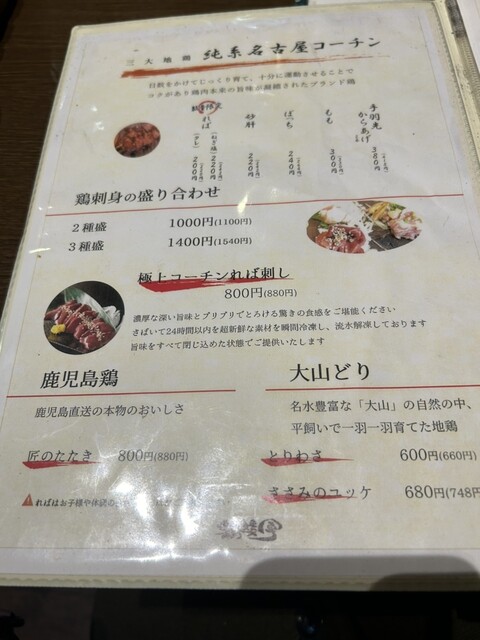 三大地鶏 純系名古屋コーチン
日数をかけてじっくり育て、十分に運動させることで
コクがあり鶏肉本来の旨味が凝縮されたブランド鶏
手羽先からあげ 380円
もも 300円
ぼっち 240円
砂肝 220円
れば
(ねぎ塩) 220円
(タレ) 200円
鶏刺身の盛り合わせ
2種盛 1000円(1100円)
3種盛 1400円(1540円)
極上コーチンれば刺し
800円(880円)
濃厚な深い旨味とプリプリでとろける驚きの食感をご堪能ください
さばいて24時間以内を超新鮮な素材を瞬間冷凍し、流水解凍しております
旨味をすべて閉じ込めた状態でご提供いたします
鹿児島鶏
鹿児島直送の本物のおいしさ
匠のたたき 800円(880円)
大山どり
名水豊富な「大山」の自然の中、
平飼いで一羽一羽育てた地鶏
とりわさ 600円(660円)
ささみのユッケ 680円(748円)
ればはお子様や体調の